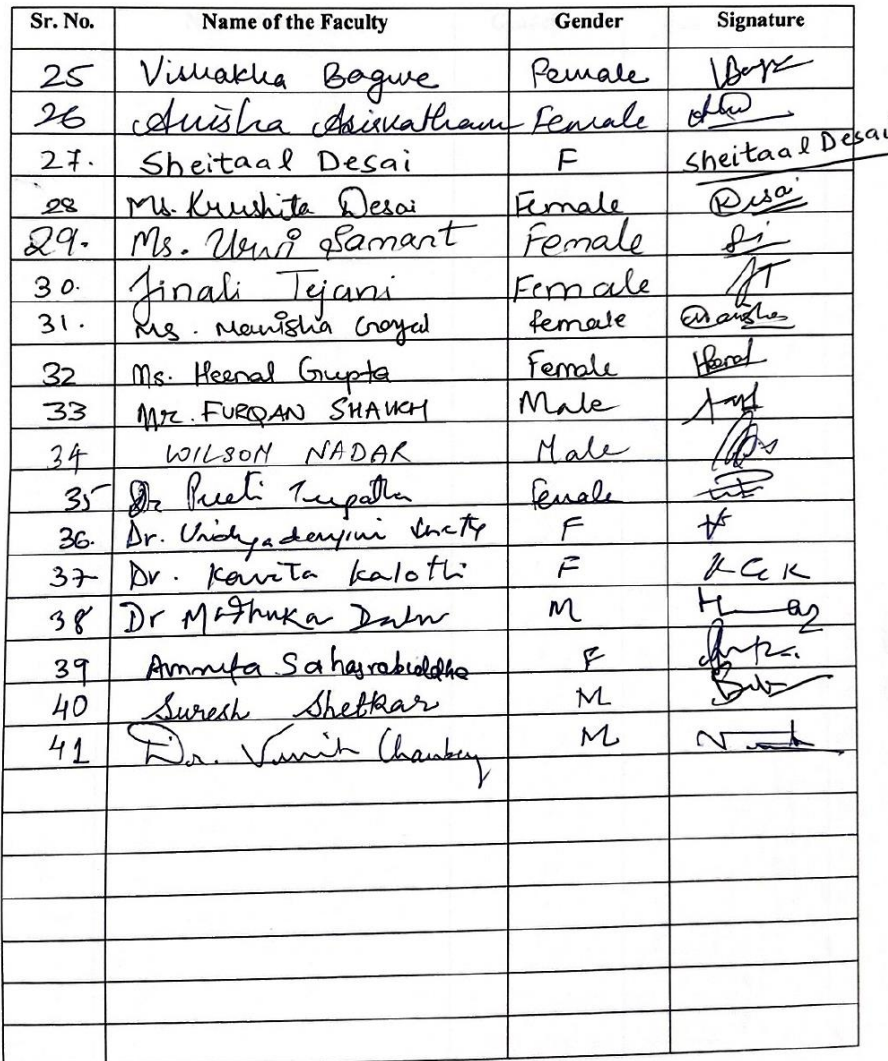 Sr. No. Name of the Faculty Gender Signature
25 Vishakha Bagwe Female
26 Anisha Asirvatham Female
27. Sheitaal Desai F Sheitaal Desai
28 Ms. Krushita Desai Female Desai
29. Ms. Urvi Samant Female
30. Jinali Tejani Female JT
31. Ms. Manisha Goyal female Manisha
32 Ms. Heenal Gupta Female Heenal
33 Mr. FURQAN SHAIKH Male
34 WILSON NADAR Male
35 Dr Preeti Female
36. Dr. F
37 Dr. Kavita Kalothi F
38 Dr M
39 Amruta Sahasrabuddhe F
40 Suresh Shetkar M
41 Dr. Vinit Chaubey M